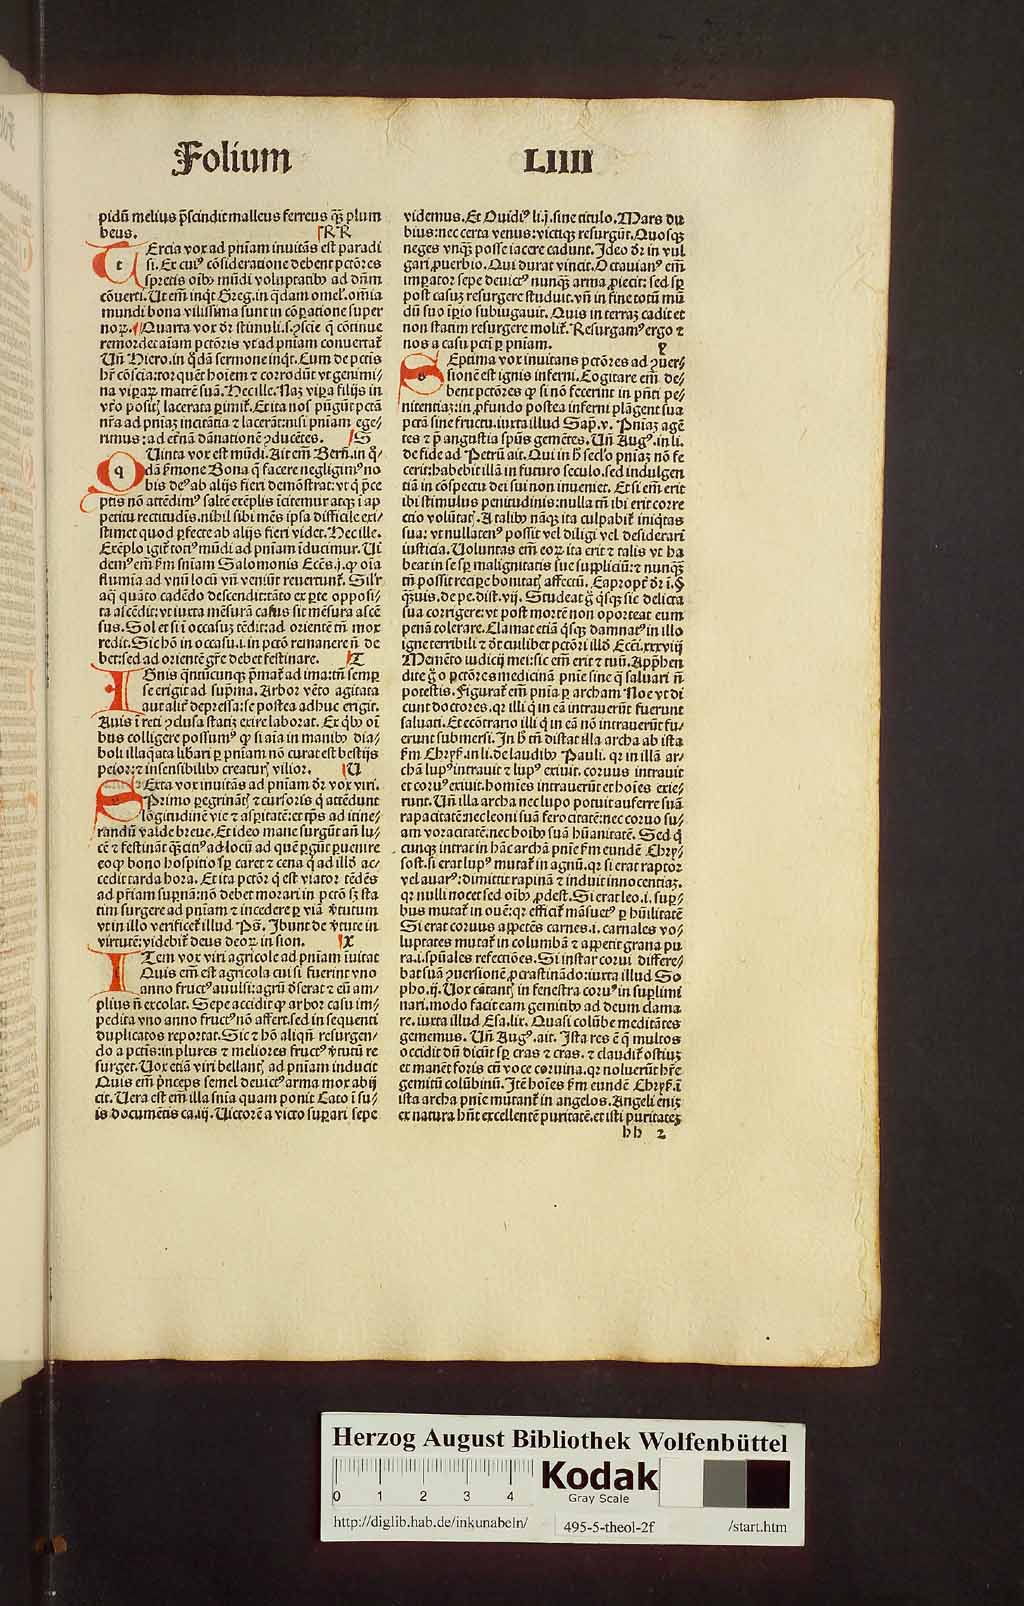 Folium LIIII
pidū melius p̄scindit malleus ferreus q̄ꝫ plum
beus. RR
Ercia vox ad pniam inuitās est paradi
si. Ex cuiꝰ cōsideratione debent pctōres
spretis oībꝰ mūdi voluptatibꝰ ad dn̄m
cōuerti. Ut em̄ inq̇t Greg. in q̇dam omel'. om̄ia
mundi bona vilissima sunt in cōꝑatione super
noꝝ. Quarta vox dr̄ stimuli. s. ꝯscīe q̄ cōtinue
remordet aīam pctōris vt ad pniam conuertat̄
Uñ Hiero. in q̇dā sermone inq̇t. Cum de pctis
hr̄ cōscia: torquēt hoīem ⁊ corrodūt vt genimi⸗
na viꝑaꝝ matrē suā. Hec ille. Naꝫ viꝑa filijs in
vt̄o positꝭ lacerata ꝑimit̄. Et ita nos pūgūt pctā
nr̄a ad pniaꝫ incitātia ⁊ lacerāt: nisi pniam ege⸗
rimus: ad et̄nā dānationē ꝯducētes. S
Uinta vox est mūdi. Ait em̄ Berñ. in q̇⸗
dā ẜmone Bona q̄ facere negligimꝰ no
bis deꝰ ab alijs fieri demōstrat: vt q̇ p̄ce
ptis nō attēdimꝰ saltē exēplis īcitemur atqꝫ ī ap
petitu rectitudis. nihil sibi mēs ipsa difficile exi⸗
stimet quod ꝑfecte ab alijs fieri videt. Hec ille.
Exēplo igit̄ totꝰ mūdi ad pniam īducimur. Ui
demꝰ em̄ ẜm sniam Salomonis Eccēs. j. ꝙ oīa
flumīa ad vnū locū vñ veniūt reuertunt̄. Sil'r
aq̄ quāto cadēdo descendit: tāto ex ꝑte opposi⸗
ta ascēdit: vt iuxta mēsurā casus sit mēsura ascē
sus. Sol et si ī occasuꝫ tēdit: ad orientē tñ mox
redit. Sic hō in occasu. i. in pctō remanere ñ de
bet: sed ad orientē grē debet festinare. T
Gnis q̄ntūcunqꝫ p̄mat̄ ad ima: tñ semꝑ
se erigit ad supīna. Arbor vēto agitata
aut alit̄ depressa: se postea adhuc erigit.
Auis ī reti ꝯclusa statiꝫ exire laborat. Ex q̇bꝰ oī
bus colligere possumꝰ ꝙ si aīa in manibꝰ dia⸗
boli illaq̄ata libari ꝑ pniam nō curat est bestijs
peior: ⁊ insensibilibꝰ creaturꝭ vilior. U
Exta vox inuitās ad pniam dr̄ vox viri.
Primo ꝑegrinātꝭ ⁊ cursoris q̇ attēdunt
lōgitudinē vie ⁊ asꝑitatē: et tp̄s ad itine⸗
randū valde breue. Et ideo mane surgūt añ lu⸗
cē ⁊ festināt q̄ꝫ citiꝰ ad locū ad quē ꝑgūt ꝑuenire
eo ꝙ bono hospitio sꝑ caret ⁊ cena q̇ ad illō ac⸗
cedit tarda hora. Et ita pctōr q̇ est viator tēdēs
ad pr̄iam suꝑnā: nō debet morari in pctō sꝫ sta
tim surgere ad pniam ⁊ incedere ꝑ viā v̄tutum
vt in illo verificet̄ illud Pō. Ibunt de v̄tute in
virtutē: videbit̄ deus deoꝝ in sion. X
Tem vox viri agricole ad pniam īuitat
Quis em̄ est agricola cui si fuerint vno
anno fructꝰ auulsi: agrū dserat ⁊ eū am⸗
plius ñ excolat. Sepe accidit ꝙ arbor casu im⸗
pedita vno anno fructꝰ nō affert. sed in sequenti
duplicatos reportat. Sic ⁊ hō aliqñ resurgen⸗
do a pctis: in plures ⁊ meliores fructꝰ v̄tutū re
surget. Uox etiā viri bellantꝭ ad pniam inducit
Quis em̄ p̄nceps semel deuictꝰ arma mox abij
cit. Uera est em̄ illa snia quam ponit Cato ī su⸗
is documētis ca. ij. Uictorē a victo suꝑari sepe
videmus. Et Ouidiꝰ li. j. sine titulo. Mars du
bius: nec certa venus: victiqꝫ resurgūt. Quosqꝫ
neges vnq̄ꝫ posse iacere cadunt. Ideo dr̄ in vul
gari ꝓuerbio. Qui durat vincit. Octauianꝰ em̄
imꝑator sepe deuictꝰ nunq̄ꝫ arma ꝓiecit: sed sꝑ
post casuꝫ resurgere studuit. vñ in fine totū mū
dū suo īꝑio subiugauit. Quis in terraꝫ cadit et
non statim resurgere molit̄. Resurgamꝰ ergo ⁊
nos a casu pcti ꝑ pniam. Y
Eptima vox inuitans pctōres ad ꝯuer⸗
sionē est ignis inferni. Cogitare em̄ de⸗
bent pctōres ꝙ si nō fecerint in pn̄ti pe⸗
nitentiaꝫ: in ꝓfundo postea inferni plāgent sua
pctā sine fructu. iuxta illud Sap̄. v. Pniaꝫ agē
tes ⁊ p̄ angustia spūs gemētes. Uñ Augꝰ. in li.
de fide ad Petrū ait. Qui in h̄ sec̄lo pniaꝫ nō fe
cerit: habebit illā in futuro seculo. sed indulgen
tiā in cōspectu dei sui non inueniet. Et si em̄ erit
ibi stimulus penitudinis: nulla tñ ibi erit corre
ctio volūtatꝭ. A talibꝰ nāqꝫ ita culpabit̄ iniq̇tas
sua: vt nullatenꝰ possit vel diligi vel desiderari
iusticia. Uoluntas em̄ eoꝝ ita erit ⁊ talis vt ha
beat in se sꝑ malignitatis sue suppliciū: ⁊ nunq̄ꝫ
tñ possit reciꝑe bonitatꝭ affectū. Eapropt̄ dr̄ ī. §
q̄ꝫuis. de pe. dist. vij. Studeat ḡ q̇sqꝫ sic delicta
sua corrigere: vt post mortē non oporteat eum
penā tolerare. Clamat etiā q̇sqꝫ damnatꝰ in illo
igne terribili ⁊ dt̄ cuilibet pctōri illō Ecci. xxxviij
Memēto iudicij mei: sic em̄ erit ⁊ tuū. App̄hen
dite ḡo pctōres medicinā pnīe sine q̄ saluari ñ
potestis. Figurat̄ em̄ pnīa ꝑ archam Noe vt di
cunt doctores. qꝛ illi q̇ in eā intrauerūt fuerunt
saluati. Et ecōtrario illi q̇ in eā nō intrauerūt fu⸗
erunt submersi. In h̄ tñ distat illa archa ab ista
ẜm Chryß. in li. de laudibꝰ Pauli. qꝛ in illā ar⸗
chā lupꝰ intrauit ⁊ lupꝰ exiuit. coruus intrauit
et coruꝰ exiuit. homīes intrauerūt et hoīes exie⸗
runt. Uñ illa archa nec lupo potuit auferre suā
rapacitatē: nec leoni suā ferocitatē: nec coruo su⸗
am voracitatē: nec hoībꝰ suā hūanitatē. Sed q̇
cunqꝫ intrat in hāc archā pnīe ẜm eundē Chry⸗
sost. si erat lupꝰ mutat̄ in agnū. qꝛ si erat raptor
vel auarꝰ: dimittit rapinā ⁊ induit innocentiaꝫ.
qꝛ nulli nocet sed oībꝰ ꝓdest. Si erat leo. i. suꝑ⸗
bus mutat̄ in ouē: qꝛ efficit̄ māsuetꝰ ꝑ hūilitatē
Si erat coruus appetēs carnes. i. carnales vo⸗
luptates mutat̄ in columbā ⁊ appetit grana pu
ra. i. spūales refectiōes. Si instar corui differe⸗
bat suā ꝯuersionē ꝓcrastinādo: iuxta illud So
pho. ij. Uox cātantꝭ in fenestra coruꝰ in suꝑlimi
nari. modo facit eam gemitibꝰ ad deum clama
re. iuxta illud Esa. lix. Quasi colūbe meditātes
gememus. Uñ Augꝰ. ait. Ista res ē q̄ multos
occidit dū dicūt sꝑ cras ⁊ cras. ⁊ claudit̄ ostiuꝫ
et manēt foris cū voce coruina. qꝛ noluerūt hr̄e
gemitū colūbinū. Itē hoīes ẜm eundē Chryß. ī
ista archa pnīe mutant̄ in angelos. Angeli eniꝫ
ex natura hn̄t excellentē puritatē. et isti puritateꝫ
hh 2
Herzog August Bibliothek Wolfenbüttel
0 1 2 3 4
Kodak
Gray Scale
http://diglib.hab.de/inkunabeln/ 495-5-theol-2f /start.htm